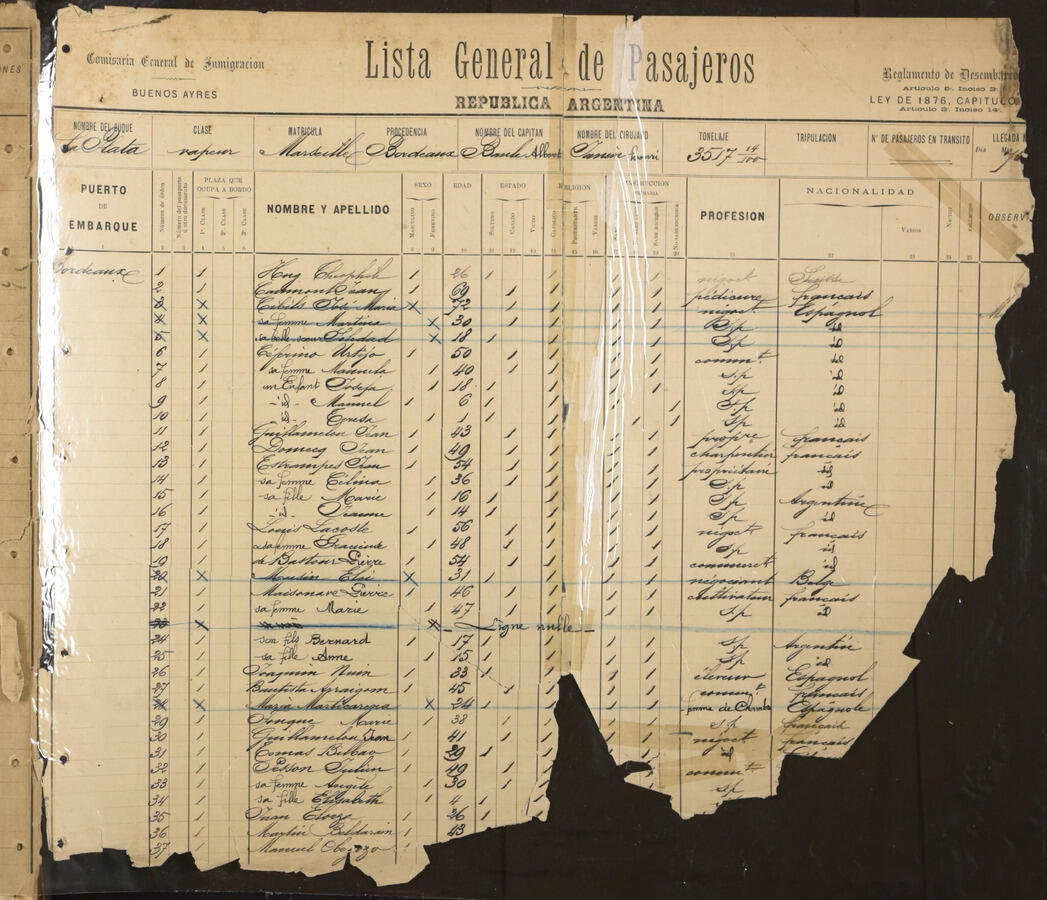 Comisaria General de Inmigracion
BUENOS AYRES
Lista General de Pasajeros
REPUBLICA ARGENTINA
Reglamento de Desembarco
Articulo 5º. Inciso 3º.
LEY DE 1876, CAPITULO
Articulo 3º. Inciso 14º.
NOMBRE DEL BUQUE CLASE MATRICULA PROCEDENCIA NOMBRE DEL CAPITAN NOMBRE DEL CIRUJANO TONELAJE TRIPULACION Nº DE PASAJEROS EN TRANSITO LLEGADA
La Plata vapeur Marseille Bordeaux Henri 3517 14/100
PUERTO DE EMBARQUE Número de órden PLAZA QUE OCUPA A BORDO 1ª CLASE 2ª CLASE 3ª CLASE NOMBRE Y APELLIDO SEXO MASCULINO FEMENINO EDAD ESTADO SOLTERO CASADO VIUDO RELIGION CATOLICA PROTESTANTE VARIOS INSTRUCCION PRIMARIA PROFESION NACIONALIDAD VARIOS OBSERV
Bordeaux 1 Hug Théophile 26 négoct Suisse
2 Caumont Jean 69 pédicure français
3 Cibils José Maria 72 négoct Espagnol
4 sa femme Martina 30 Sp id
5 sa belle soeur Soledad 18 Sp id
6 Céferino Urtijo 50 commt id
7 sa femme Manuela 40 Sp id
8 un Enfant Josefa 18 Sp id
9 id Manuel 6 Sp id
10 id Teresa 1 Sp id
11 Guillamelon Jean 43 propre français
12 Domecq Jean 49 charpentier français
13 Estrampes Jean 54 propriétaire id
14 sa femme Célina 36 Sp id
15 sa fille Marie 16 Sp Argentine
16 id Jeanne 14 Sp id
17 Louis Lacoste 56 négoct français
18 sa femme Gracieuse 48 Sp id
19 de Bastour Pierre 54 commerct id
20 Mousin Eloi 31 négociant Belge
21 Maisonave Pierre 46 cultivateur français
22 sa femme Marie 47 Sp id
Ligne nulle
24 son fils Bernard 17 Sp Argentin
25 sa fille Anne 15 Sp id
26 Joaquin Nuin 33 éleveur Espagnol
27 Bautista 45 commt français
28 Maria 24 femme de Chambre Espagnole
29 Marie 38 Sp français
30 Guillamelou Jean 41 négoct français
31 Tomas Bilbao 29 id
32 Pesson Julien 49 commt
33 sa femme Angèle 30 Sp
34 sa fille Elisabeth 4
35 Juan 26
36 Martin Beldarain 43
37 Manuel